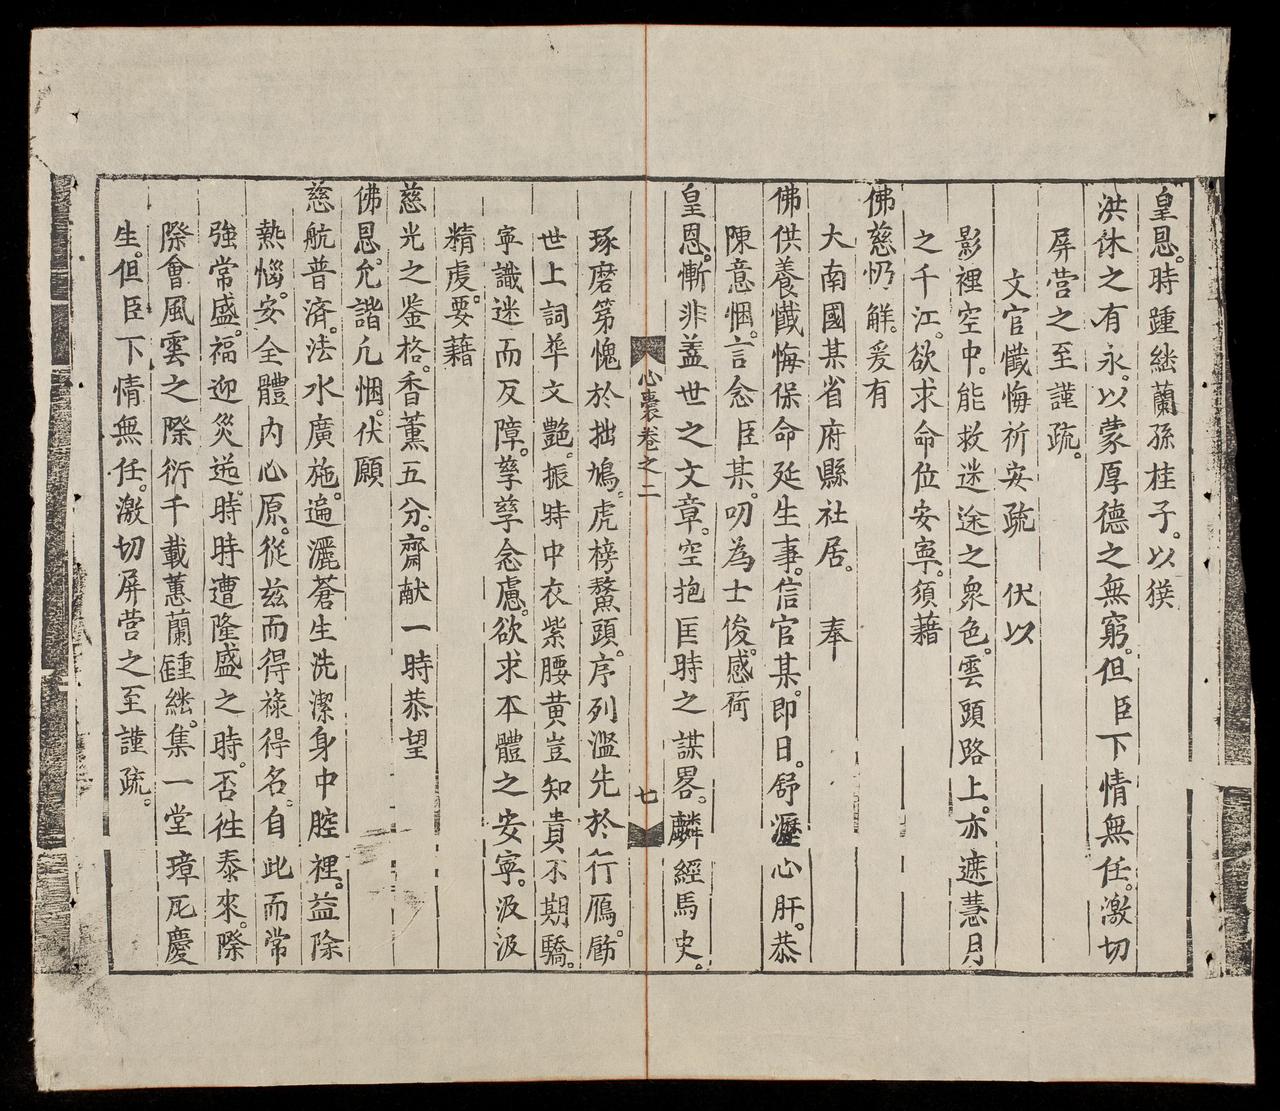 皇恩。時踵継蘭孫桂子。以獉
洪休之有永。以蒙厚德之無窮。但臣下情無任。激切
屏营之至謹疏。
文官懺悔祈安疏　伏以
影裡空中。能救迷途之衆色。雲頭路上。亦遮慧月
之千江。欲求命位安寕。須藉
佛慈忉觧。爰有
大南國某省府縣社居。　奉
佛供養懺悔保命延生事。信官某。即日。舒瀝心肝。恭
陳意悃。言念臣某。叨為士俊。感荷
皇恩。慚非盖世之文章。空抱匡時之謀畧。麟經馬史。
心囊卷之二
七
琢磨第愧於拙鳩。虎榜鰲頭。序列濫先於行鴈。
世上詞華文艶。振時中衣紫腰黄豈知貴不期驕。
寕識迷而反障。孽孽念慮。欲求本體之安寧。汲汲
精虔。要藉
慈光之鉴格。香薰五分。齋献一時恭望
佛恩。允諧凢悃。伏願
慈航普済。法水廣施。遍灑蒼生洗潔身中腔裡。益除
熱惱。安全體内心原。從兹而得祿得名。自此而常
強常盛。福迎災逝。時時遭隆盛之時。否徃泰來。際
際會風雲之際衍千載蕙蘭鍾継。集一堂璋瓦慶
生。但臣下情無任。激切屏营之至謹疏。